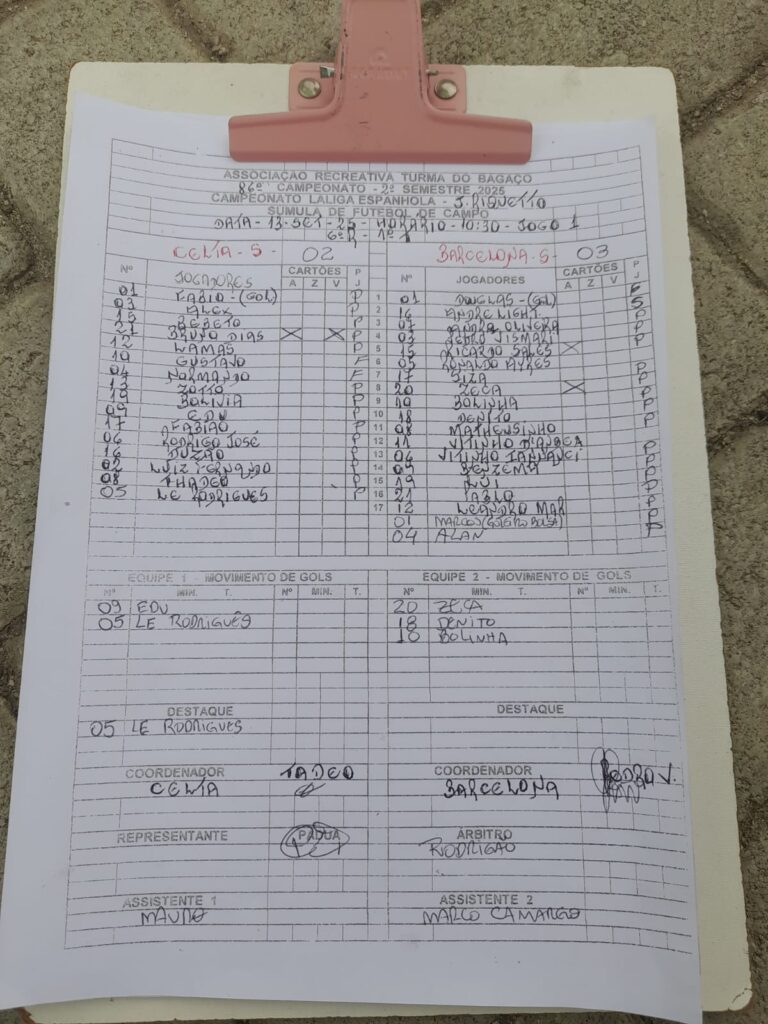 ASSOCIAÇAO RECREATIVA TURMA DO BAGAÇO
86º CAMPEONATO - 2º SEMESTRE 2025
CAMPEONATO LALIGA ESPANHOLA - J. RIQUETTO
SÚMULA DE FUTEBOL DE CAMPO
DATA - 13-SET-25 - HORARIO - 10:30 - JOGO 1
6ª R - 1º T
CELTA - S - 02
BARCELONA - S - 03
Nº JOGADORES CARTÕES P
A Z V J
01 FABIO - (GOL) P
03 ALEX P
15 BEBETO P
21 BRUNO DIAS X X P
12 LAMAS P
10 GUSTAVO F
04 NORMANDO F
13 ZOTTO P
19 BOLIVIA P
09 EDU P
17 FABIÃO P
06 RODRIGO JOSÉ P
16 DUZÃO P
02 LUIZ FERNANDO P
08 THADEO P
05 LE RODRIGUES P
Nº JOGADORES CARTÕES P
A Z V J
1 01 DOUGLAS - (GOL)
2 16 ANDRE LIGHT
3 07 SANDRO OLIVEIRA
4 03 PEDRO VISMARI
5 15 RICARDO SALES X
6 05 RONALDO AYRES
7 17 SIZA
8 20 ZECA X
9 10 BOLINHA
10 18 DENITO
11 08 MATHEUSINHO
12 11 VITINHO
13 06 VITINHO
14 09 BENZEMA
15 19 LUI
16 21 PABLO
17 12 LEANDRO MAR
01 MARCOS (GOLEIRO BOLSA)
04 ALAN
EQUIPE 1 - MOVIMENTO DE GOLS
Nº MIN. T. Nº MIN. T.
09 EDU
05 LE RODRIGUÊS
EQUIPE 2 - MOVIMENTO DE GOLS
Nº MIN. T. Nº MIN. T.
20 ZECA
18 DENITO
10 BOLINHA
DESTAQUE
05 LE RODRIGUES
DESTAQUE
COORDENADOR TADEO
CELTA
COORDENADOR
BARCELONA
REPRESENTANTE PADUA
ÁRBITRO
RIODRIGÃO
ASSISTENTE 1
MAURO
ASSISTENTE 2
MARCO CAMARGO